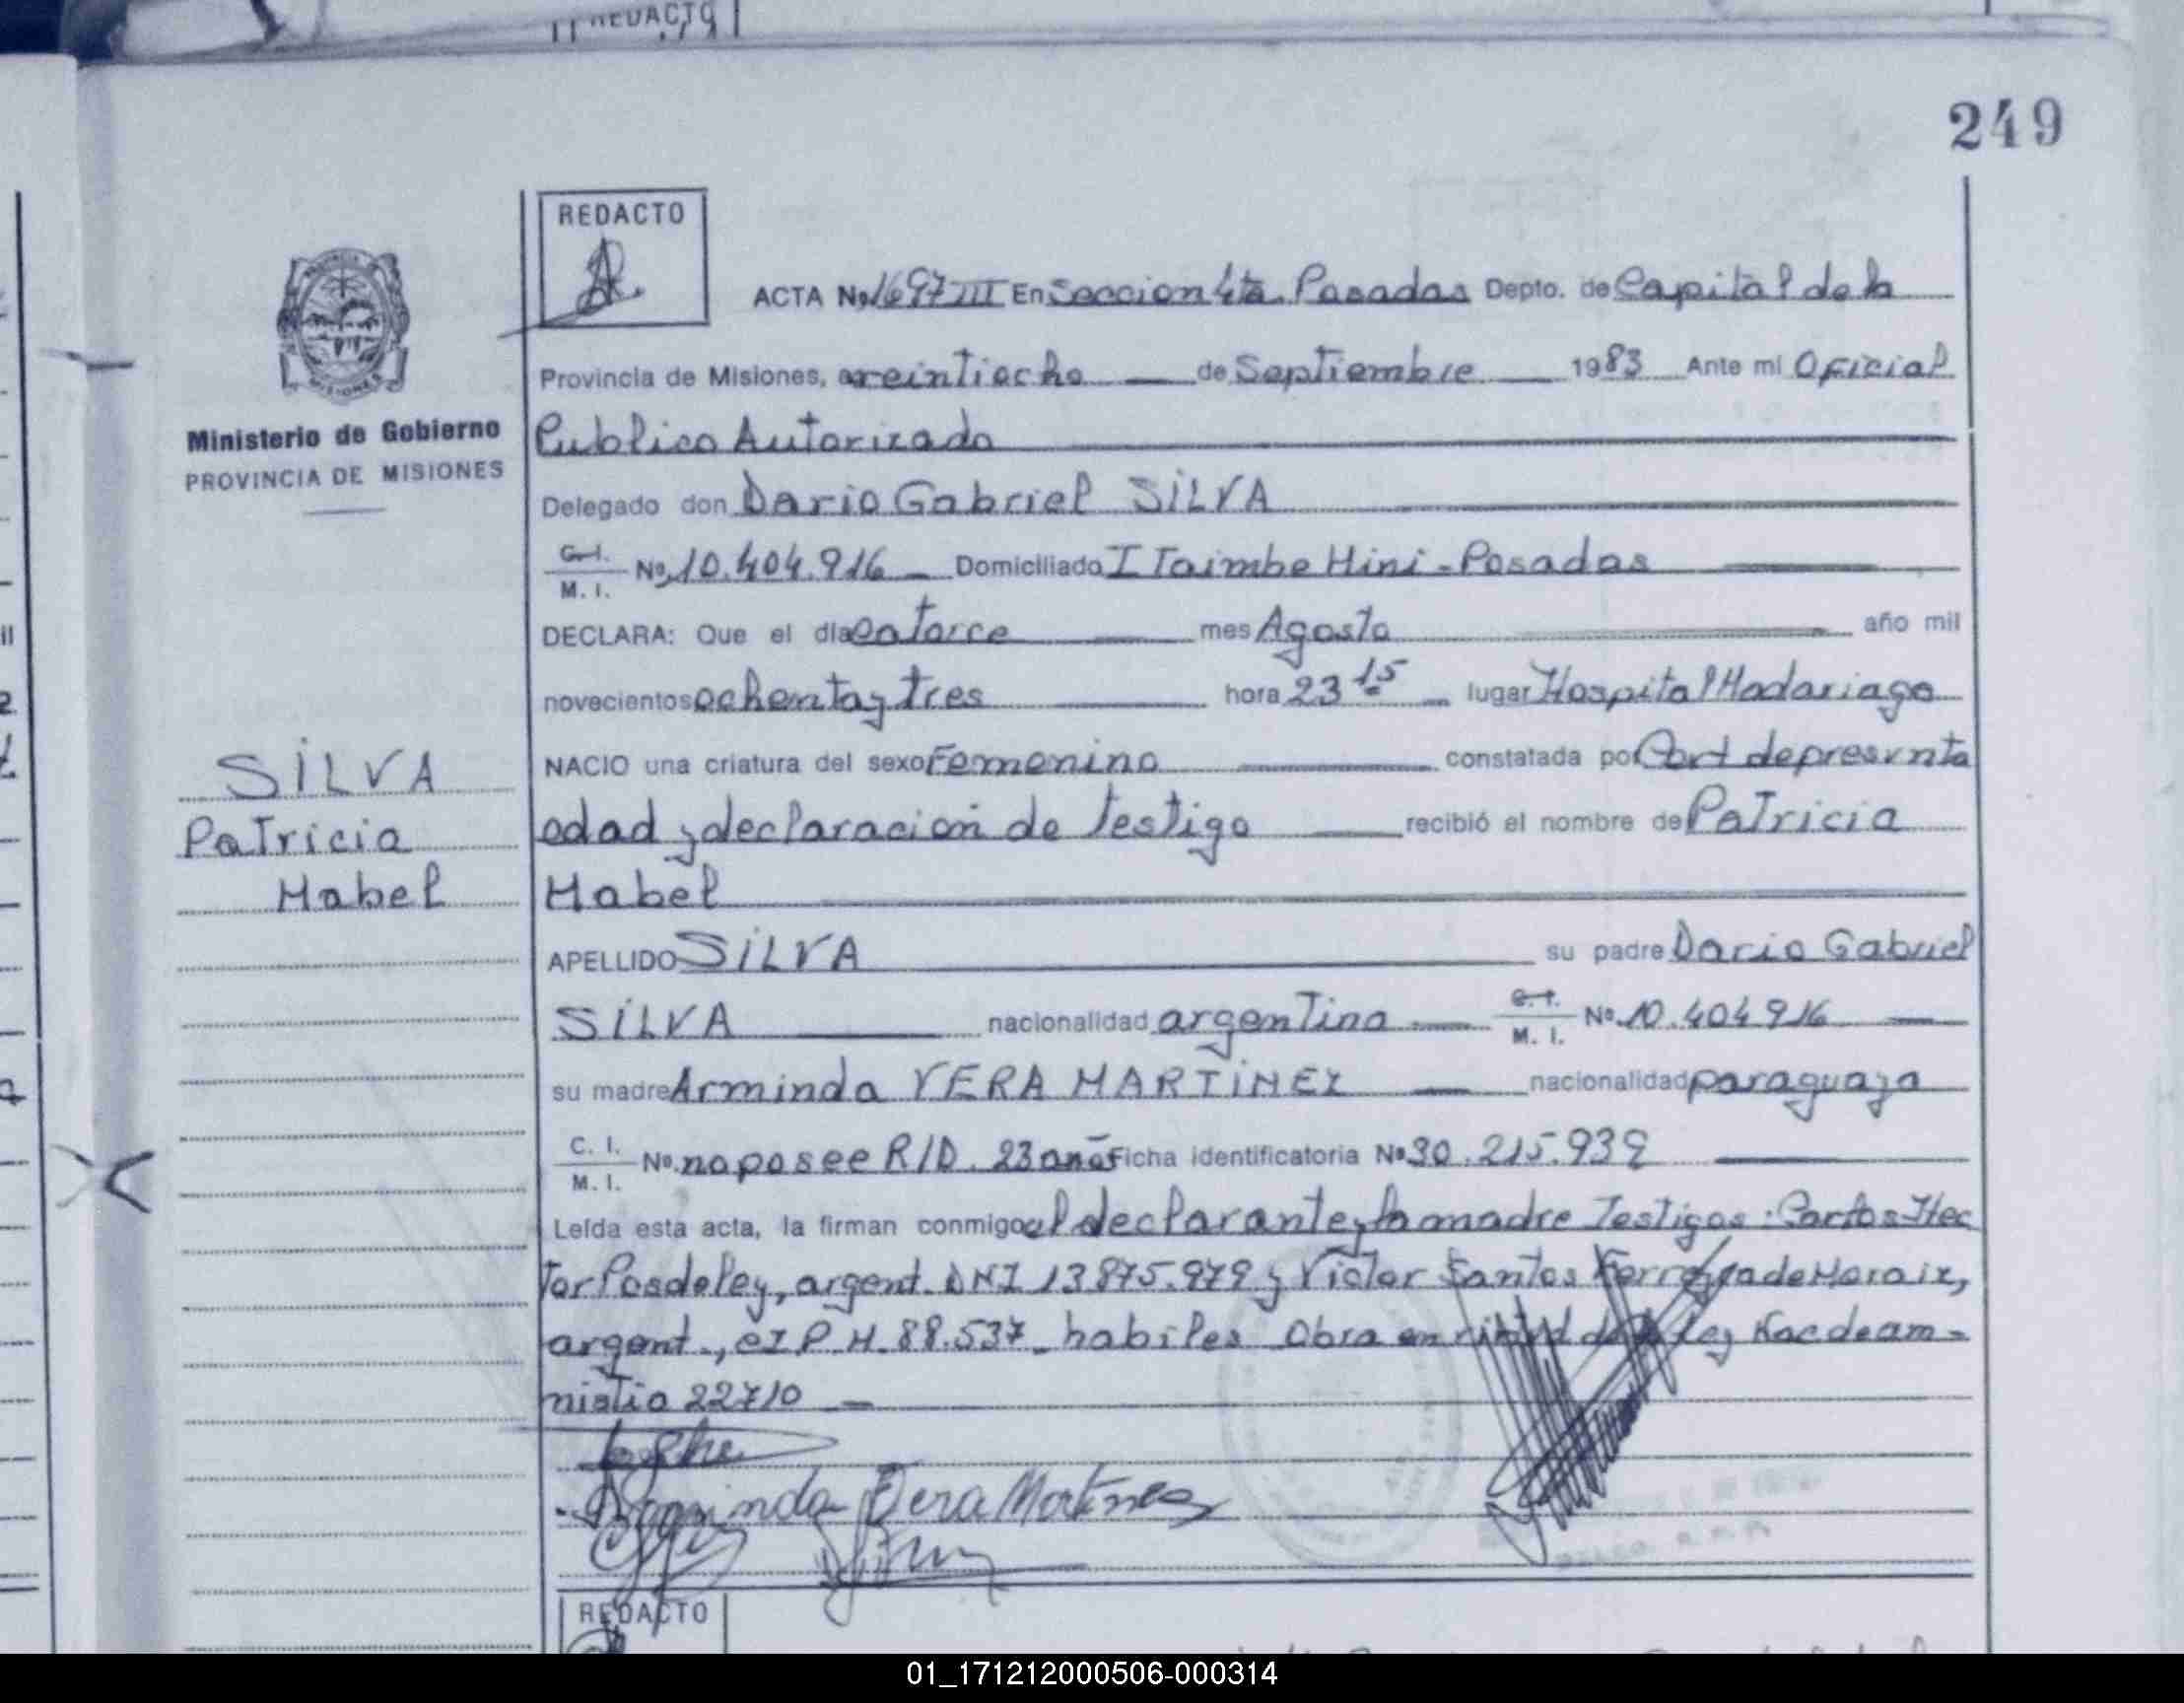 REDACTO
249
REDACTO
ACTA No 1697 III En Seccion 4ta. Posadas Depto. de Capital de la
Provincia de Misiones, a veintiocho de Septiembre 1983 Ante mi Oficial
Publico Autorizado
Ministerio de Gobierno
PROVINCIA DE MISIONES
Delegado don Dario Gabriel SILVA
C.I. M. I. No. 10.404.916 Domiciliado I Taimbe Mini - Posadas
DECLARA: Que el día catorce mes Agosto año mil
novecientos ochenta y tres hora 23 15 lugar Hospital Madariaga
NACIO una criatura del sexo Femenino constatada por Cert de presunta
edad y declaracion de testigo recibió el nombre de Patricia
Mabel
SILVA
Patricia
Mabel
APELLIDO SILVA su padre Dario Gabriel
SILVA nacionalidad argentina C.I. M. I. No. 10.404916
su madre Arminda VERA MARTINEZ nacionalidad paraguaya
C. I. M. I. No. no posee R/D. 23 años Ficha identificatoria No 30.215.939
Leída esta acta, la firman conmigo el declarante y la madre Testigos: Carlos Hec
tor Posdeley, argent. DNI 13875.979 y Victor Santos de Moraiz,
argent., CI P.M. 88.537 habiles Obra en de ley Nac de am-
nistia 22710
Arminda Vera Martinez
REDACTO
01_171212000506-000314